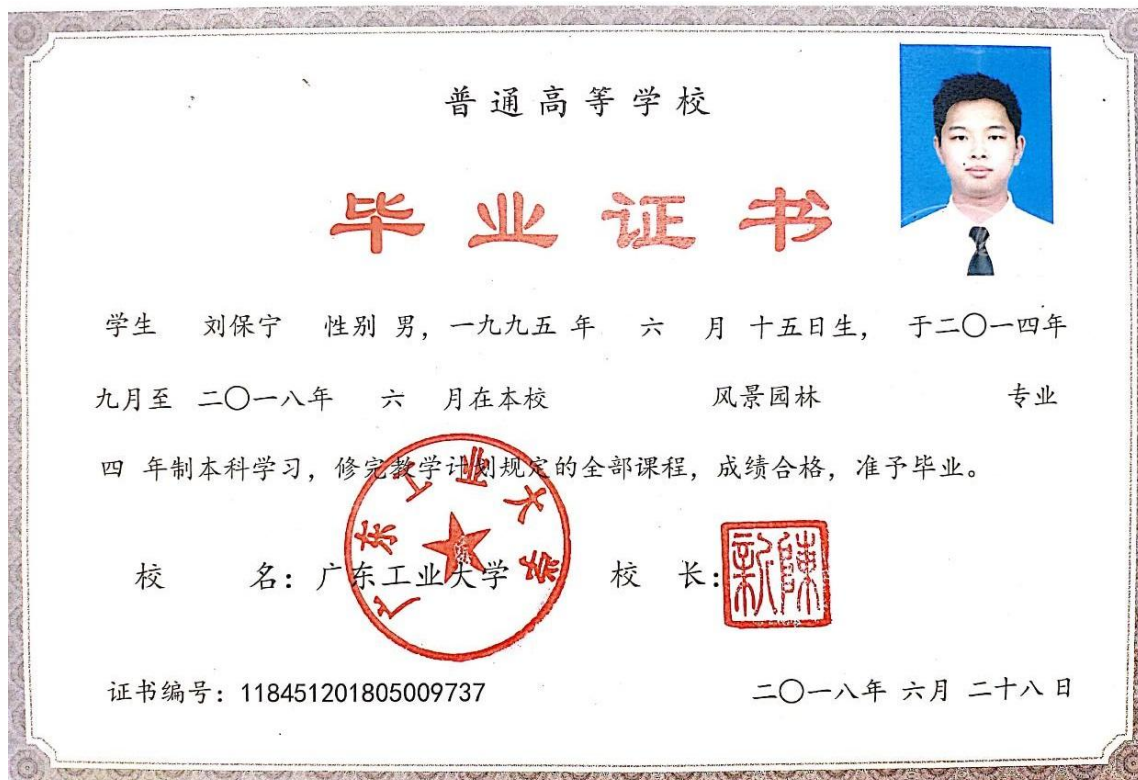 普通高等学校
毕业证书
学生 刘保宁 性别 男，一九九五 年 六 月 十五日生， 于二〇一四年
九月至 二〇一八年 六 月在本校 风景园林 专业
四 年制本科学习，修完教学计划规定的全部课程，成绩合格，准予毕业。
广东工业大学
校 名：广东工业大学 校 长：
陳新
证书编号：118451201805009737 二〇一八年 六月 二十八日